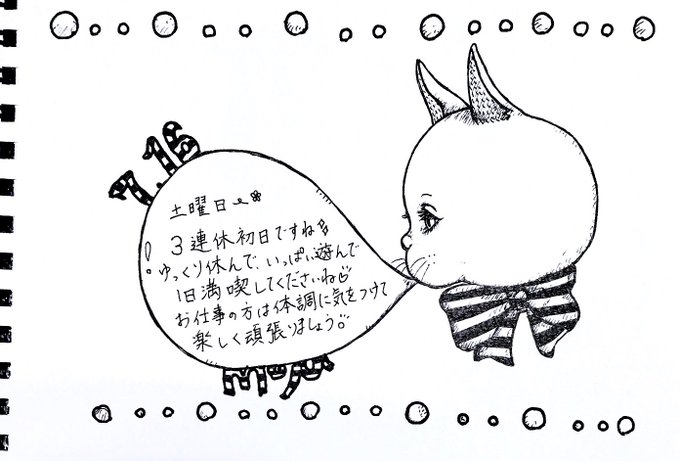 7.16
土曜日
3連休初日ですね
ゆっくり休んで、いっぱい遊んで
1日満喫してくださいね
お仕事の方は体調に気をつけて
楽しく頑張りましょう